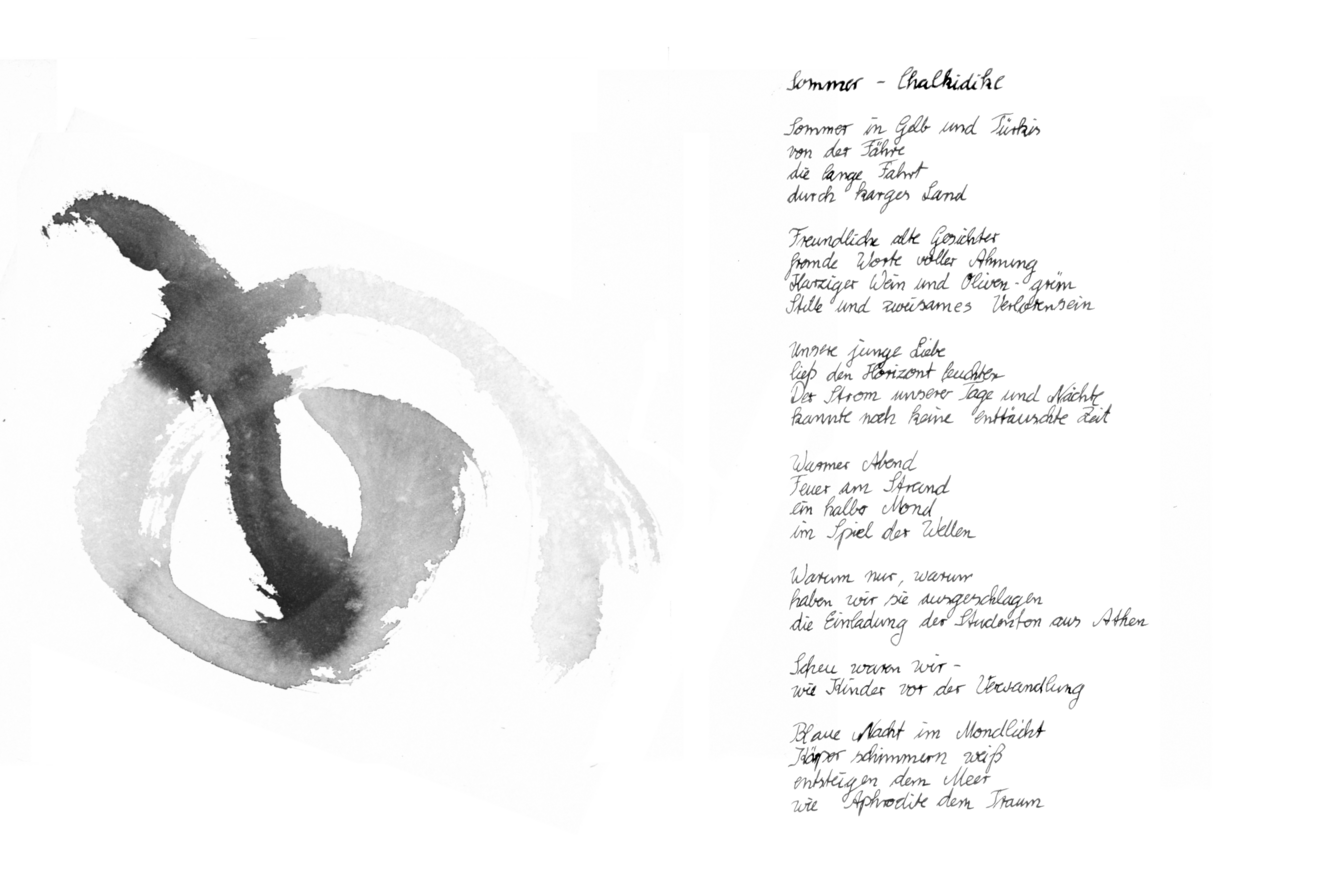 Sommer - Chalkidike
Sommer in Gelb und Türkis
von der Fähre
die lange Fahrt
durch karges Land
Freundliche alte Gesichter
fremde Worte voller Ahnung
Harziger Wein und Oliven-grün
Stille und zweisames Verlorensein
Unsere junge Liebe
ließ den Horizont leuchten
Der Strom unserer Tage und Nächte
kannte noch keine enttäuschte Zeit
Warmer Abend
Feuer am Strand
ein halber Mond
im Spiel der Wellen
Warum nur, warum
haben wir sie ausgeschlagen
die Einladung der Studenten aus Athen
Scheu waren wir -
wie Kinder vor der Verwandlung
Blaue Nacht im Mondlicht
Körper schimmern weiß
entsteigen dem Meer
wie Aphrodite dem Traum